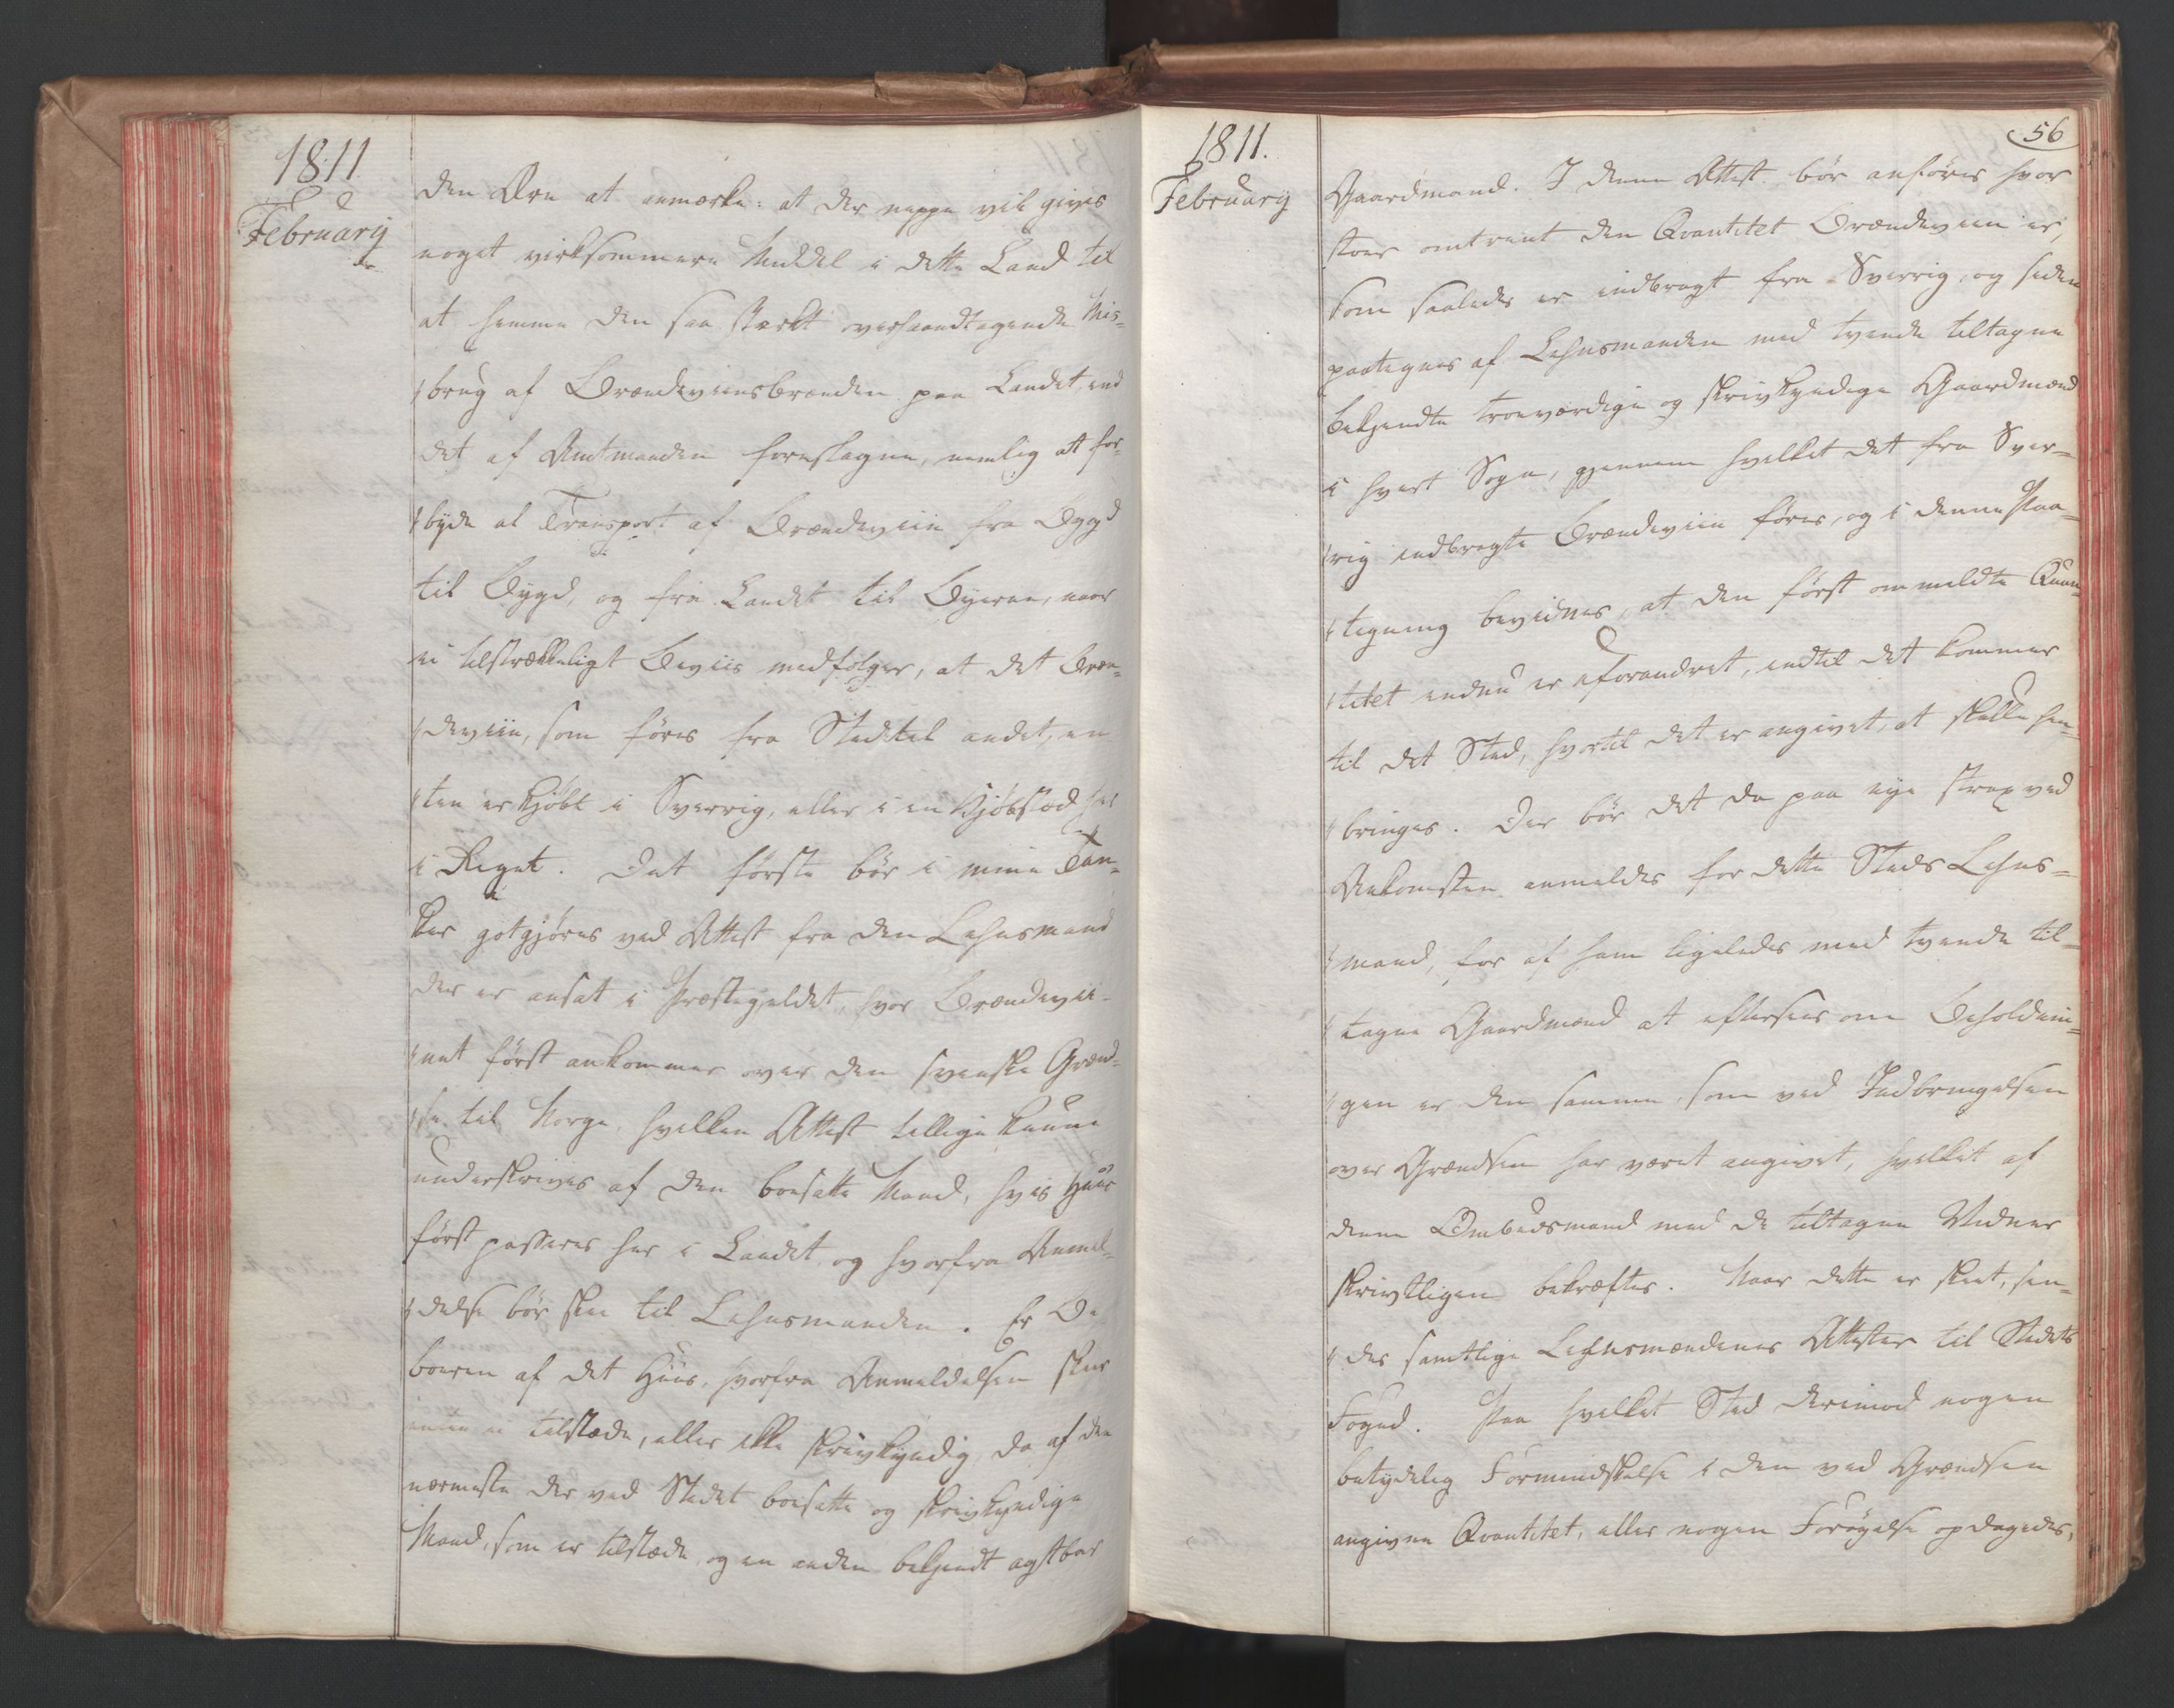 1811
February
den Ære at anmærke: at der neppe vil gives
noget virksommere Middel i dette Land til
at hemme den saa stærkt overhaandtagende Mis=
brug af Brændeviinsbrænden paa Landet end
det af Amtmanden foreslagne, nemlig at for=
byde al Transport af Brændeviin fra Bygd
til Bygd, og fra Landet til Byerne, naar
ei tilstrækkeligt Beviis medfølger, at det Bræn=
deviin, som føres fra Sted til andet, en
ten er kjøbt i Sverrig, eller i en Kjøbstad her
i Riget. Det første bør i mine Tan=
ker gotgjøres ved Attest fra den Lehnsmand
der er ansat i Præstegieldet, hvor Brændevii=
net først ankommer over den svenske Grænd=
se til Norge, hvilken Attest tillige kunne
underskrives af den boesatte Mand, hvis Huus
først passeres her i Landet, og hvorfra Anmel=
delse bør skee til Lehnsmanden. Er Be
boeren af det Huus, hvorfra Anmeldelsen skeer
enten ei tilstæde, eller ikke skrivkyndig, da af den
nærmeste der ved Stedet boesatte og skrivkyndige
Mand, som er tilstæde, og en anden bekjendt agtbar
1811.
February
56
Gaardmand. I denne Attest bør anføres hvor
stoer omtrent den Qvantitet Brændeviin er,
som saaledes er indbragt fra Sverrig, og siden
paategnes af Lehnsmanden med tvende tiltagne
bekjendte troeværdige og skrivkyndige Gaardmænd
i hvert Sogn, gjennem hvilket det fra Sver=
rig indbragte Brændeviin føres, og i denne Paa=
tegning bevidnes, at den først ommeldte Quan=
titet endnu er uforandret, indtil det kommer
til det Sted, hvortil det er angivet, at skulle hen=
bringes. Der bør det da paa nye strax ved
Ankomsten anmeldes for dette Steds Lehns=
mand, for af ham ligeledes med tvende til=
tagne Gaardmænd at eftersees om Beholdnin=
gen er den samme, som ved Indbringelsen
over Grændsen har været angivet, hvilket af
denne Ombudsmand med de tiltagne Vidner
skrivtligen bekræftes. Naar dette er skeet, sen=
des samtlige Lehnsmændenes Attester til Stedets
Foged. Paa hvilket Sted derimod nogen
betydelig Formindskelse i den ved Grændsen
angivne Qvantitet, eller nogen Forøgelse opdagedes,